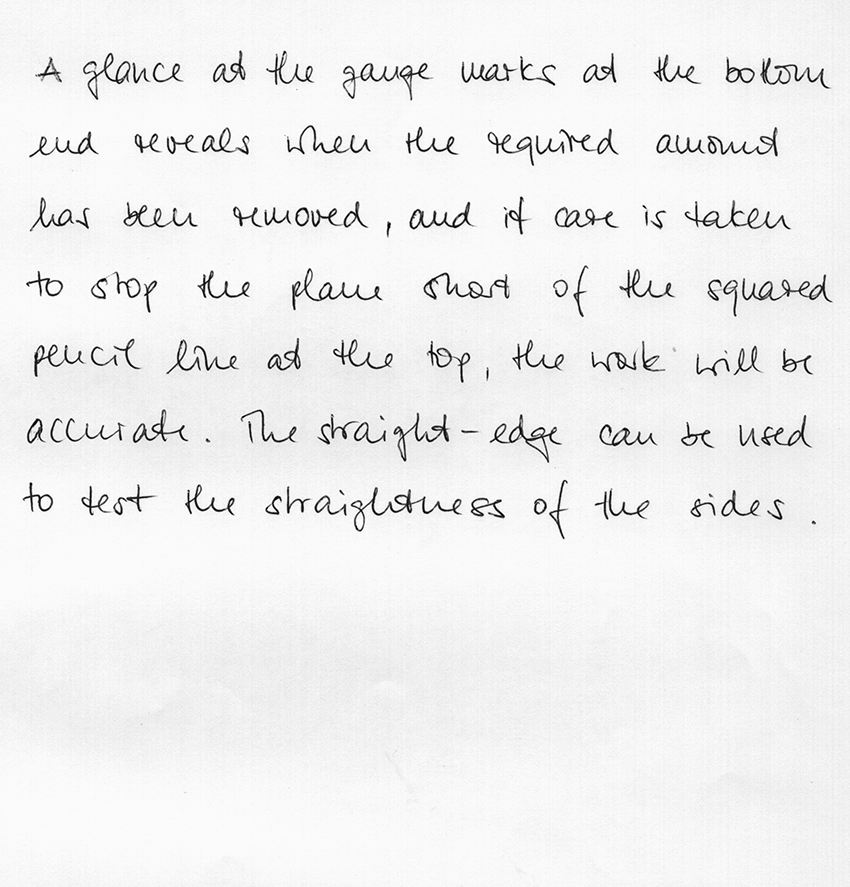 A glance at the gauge marks at the bottom
end reveals when the required amount
has been removed, and if care is taken
to stop the plane short of the squared
pencil line at the top, the work will be
accurate. The straight-edge can be used
to test the straightness of the sides.